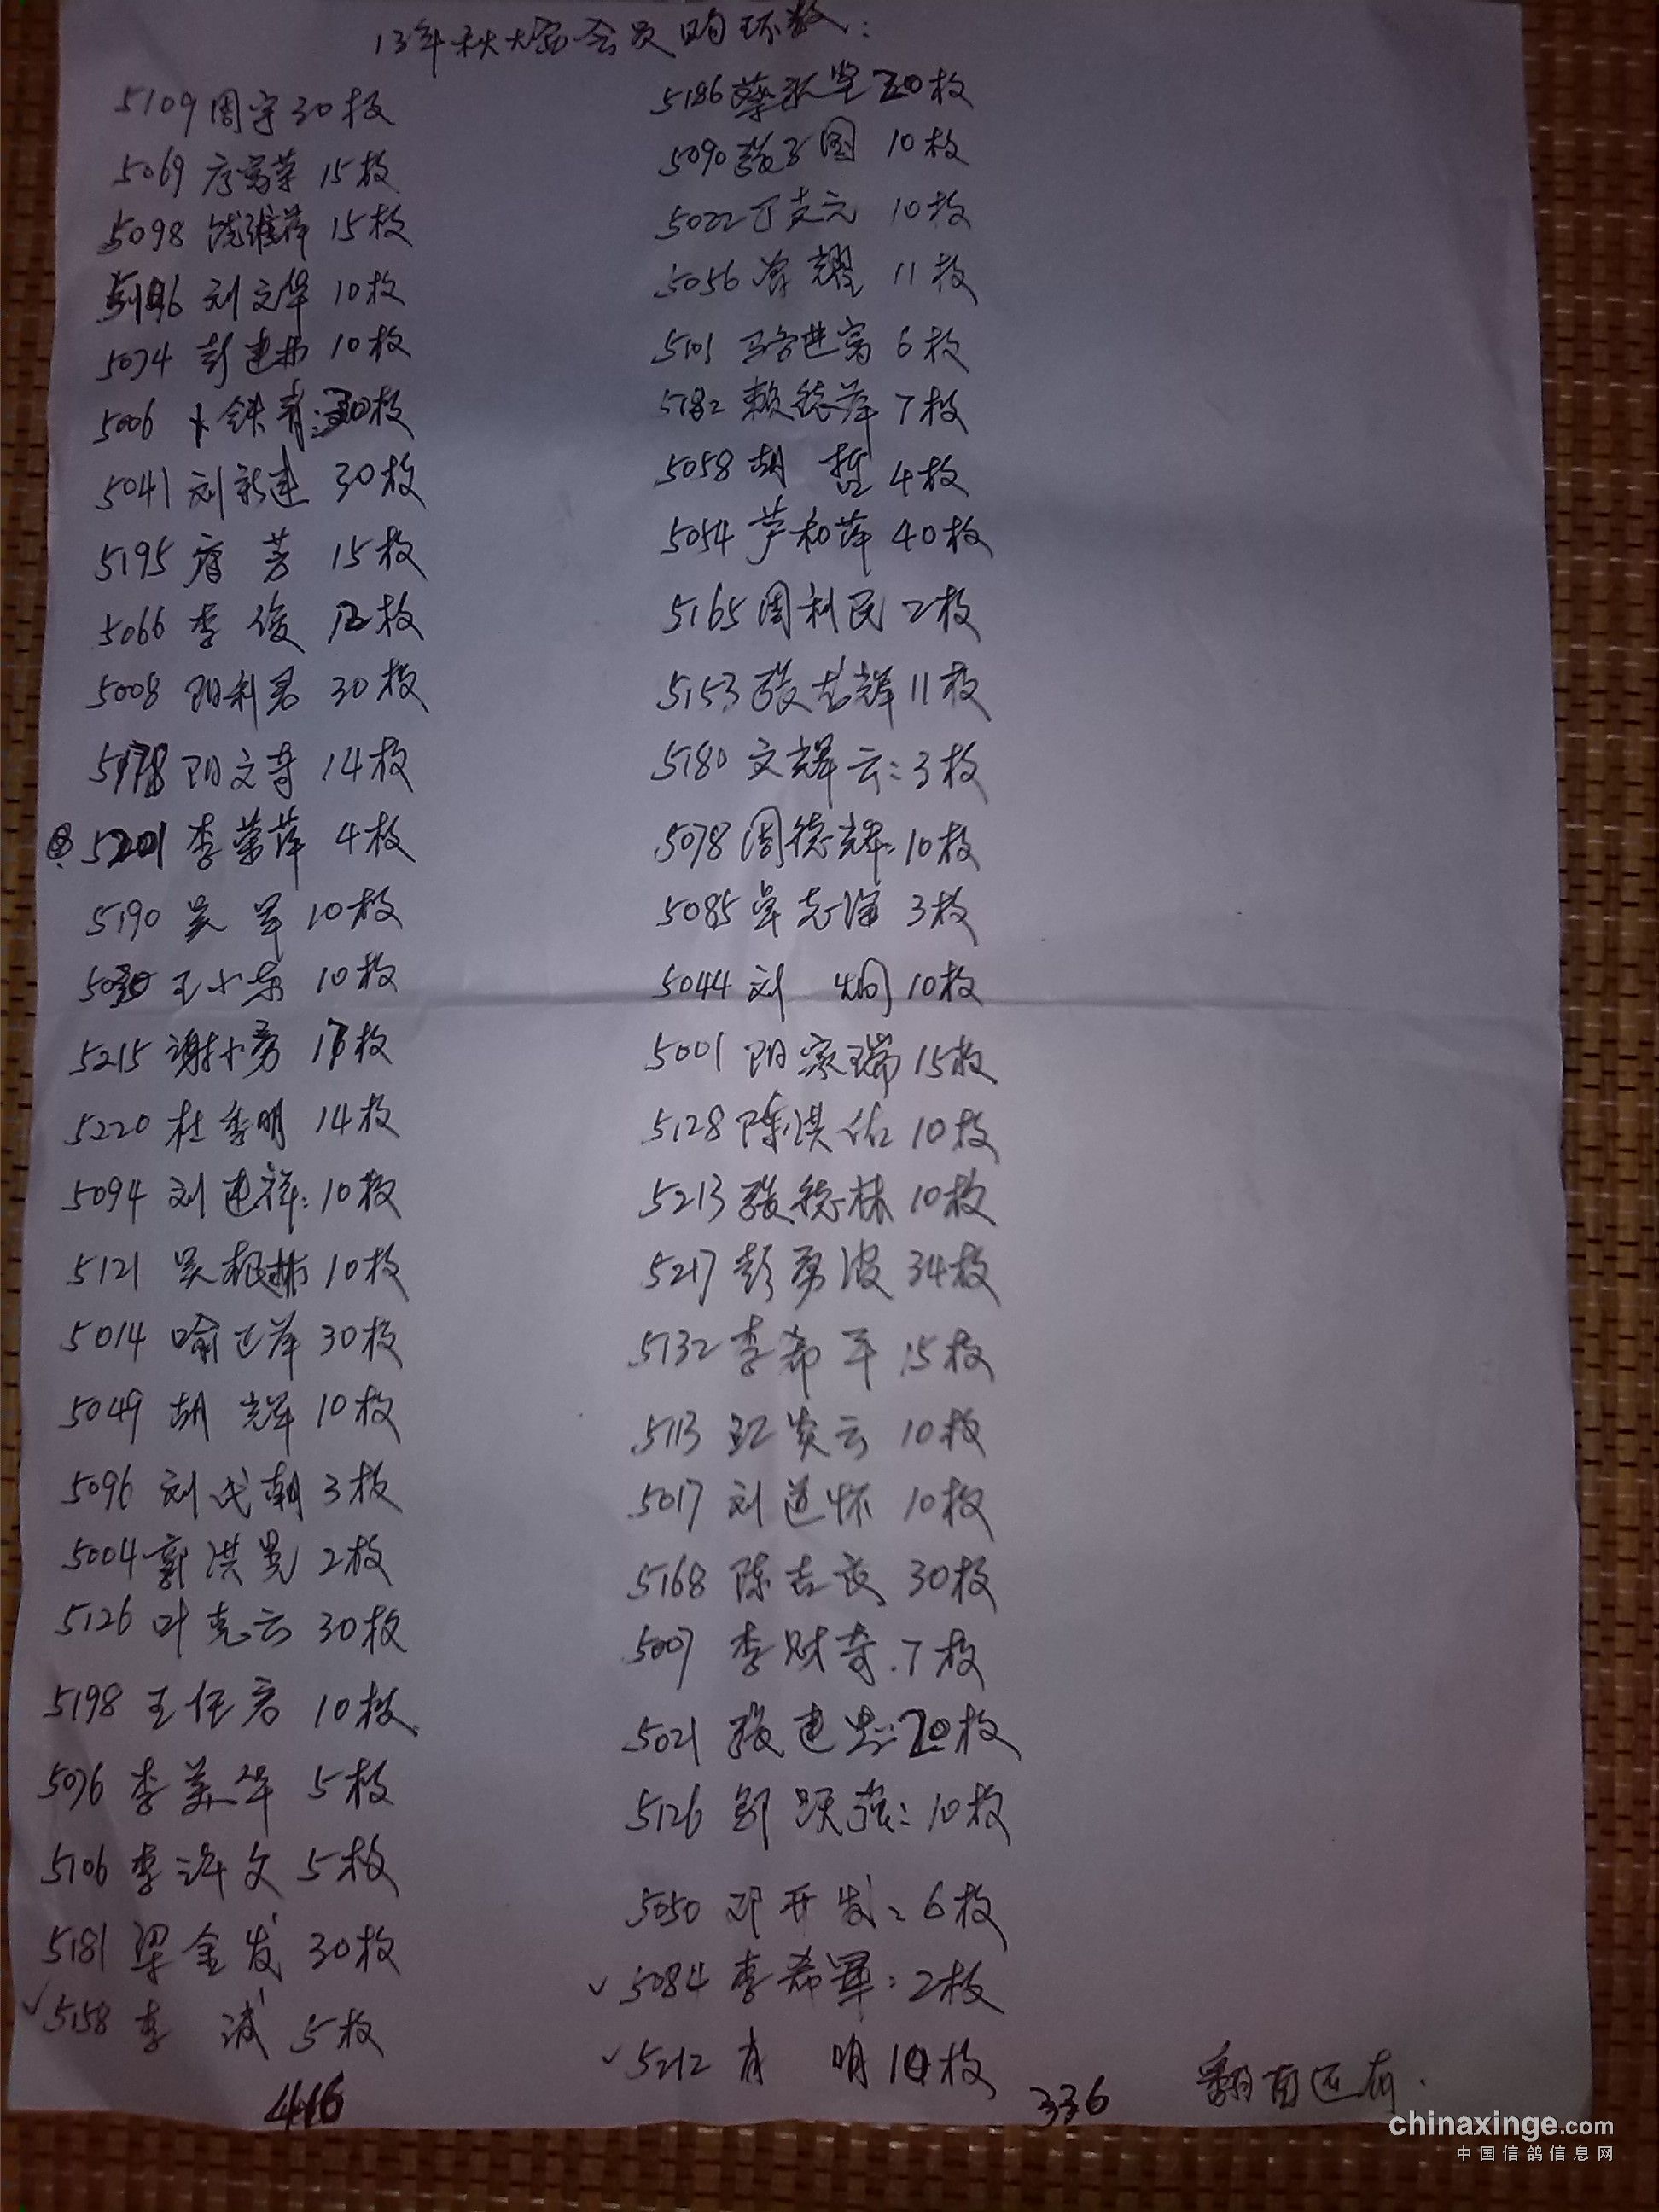 13年秋大奖会员购环数:
5109 周宇 30枚
5069 唐富荣 15枚
5098 饶维萍 15枚
刘文华 10枚
5074 彭建林 10枚
5006 卜铁青: 30枚
5041 刘新建 30枚
5195 唐芳 15枚
5066 李俊 12枚
5008 阳利君 30枚
5178 阳文奇 14枚
5201 李荣萍 4枚
5190 吴军 10枚
王小东 10枚
5215 谢小勇 17枚
5220 杜季明 14枚
5094 刘建祥: 10枚
5121 吴根林 10枚
5014 喻正萍 30枚
5049 胡辉 10枚
5096 刘代朝 3枚
5004 郭洪晃 2枚
5126 叶克云 30枚
5198 王任君 10枚
5076 李美华 5枚
5106 李泽文 5枚
5181 梁金发 30枚
✓ 5158 李斌 5枚
416
5186 蔡 坚 20枚
5090 张子国 10枚
5022 丁支元 10枚
5056 常耀 11枚
5101 进富 6枚
5182 赖德萍 7枚
5058 胡哲 4枚
5054 芦和萍 40枚
5165 周利民 2枚
5153 张志辉 11枚
5180 文辉云: 3枚
5078 周德辉: 10枚
5085 单志海 3枚
5044 刘炯 10枚
5001 阳家瑞 15枚
5128 陈洪佑 10枚
5213 张德林 10枚
5217 彭勇波 34枚
5132 李希平 15枚
5113 江炎云 10枚
5017 刘道怀 10枚
5168 陈吉良 30枚
5007 李财奇. 7枚
5021 张建忠: 20枚
5126 邹跃强: 10枚
5050 邓开发: 6枚
✓ 5084 李希军: 2枚
✓ 5212 肖明 10枚
336
翻面还有.
chinaxinge.com
中国信鸽信息网